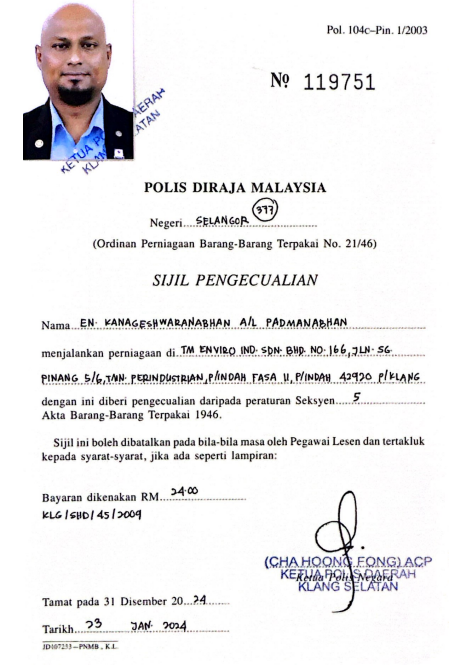 Pol. 104c–Pin. 1/2003
No 119751
KETUA POLIS DAERAH
KLANG SELATAN
POLIS DIRAJA MALAYSIA
Negeri SELANGOR (377)
(Ordinan Perniagaan Barang-Barang Terpakai No. 21/46)
SIJIL PENGECUALIAN
Nama EN. KANAGESHWARANABHAN A/L PADMANABHAN
menjalankan perniagaan di TM ENVIRO IND. SDN. BHD. NO. 166, JLN. SG.
PINANG 5/6, TMN. PERINDUSTRIAN, P/INDAH FASA II, P/INDAH 42920 P/KLANG
dengan ini diberi pengecualian daripada peraturan Seksyen 5
Akta Barang-Barang Terpakai 1946.
Sijil ini boleh dibatalkan pada bila-bila masa oleh Pegawai Lesen dan tertakluk
kepada syarat-syarat, jika ada seperti lampiran:
Bayaran dikenakan RM 24.00
KLG/SHD/45/2009
(CHA HOONG FONG) ACP
KETUA POLIS DAERAH
Ketua Polis Negara
KLANG SELATAN
Tamat pada 31 Disember 20 24
Tarikh 23 JAN. 2024
JD107233—PNMB., K.L.